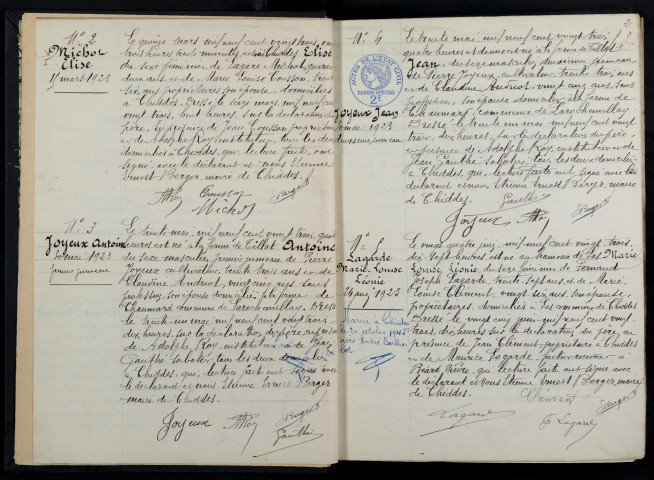 N° 2
Michot
Elise
15 mars 1923
Le quinze mars mil neuf cent vingt trois,
trois heures trente minutes est née à Chiddes Elise
du sexe féminin, de Lazare Michot, quarante
deux ans, et de Marie Louise Cousson, trente
six ans, propriétaires, son épouse, domiciliés
à Chiddes. Dressé le seize mars, mil neuf cent
vingt trois, huit heures, sur la déclaration du
père, en présence de Jean Cousson propriétaire
et de Adolphe Roy instituteur, tous les deux
domiciliés à Chiddes, qui, lecture faite, ont
signé avec le déclarant et nous Etienne
Ernest Berger, maire de Chiddes.
ARoy Cousson Berger
Michot
N° 3
Joyeux Antoine
30 mai 1923
premier jumeau
Le trente mai, mil neuf cent vingt trois, quatre
heures est né à la ferme de Tillot Antoine
du sexe masculin, premier jumeau de Pierre
Joyeux cultivateur, trente trois ans et de
Claudine Andriot, vingt cinq ans, sans
profession, son épouse domiciliés à la ferme
de Chaumard commune de Larochemillay. Dressé
le trente un mai mil neuf cent vingt trois
dix heures, sur la déclaration du père, en présence
de Adolphe Roy, instituteur et de Jean
Gauthé sabotier, tous les deux domiciliés
à Chiddes, qui, lecture faite ont signé avec
le déclarant et nous Etienne Ernest Berger
maire de Chiddes.
Joyeux ARoy Berger
Gauthé
N° 4
Joyeux Jean
30 mai 1923
deuxième jumeau
ACTES DE L'ETAT CIVIL
PAPIER SPECIAL
2F
Le trente mai, mil neuf cent vingt trois,
quatre heures et demie est né à la ferme de Tillot
Jean, du sexe masculin, deuxième jumeau
de Pierre Joyeux, cultivateur, trente trois ans
et de Claudine Andriot, vingt cinq ans, sans
profession, son épouse domiciliés à la ferme de
Chaumard, commune de Larochemillay
Dressé le trente un mai, mil neuf cent vingt
trois, dix heures, sur la déclaration du père,
en présence de Adolphe Roy, instituteur et de
Jean Gauthé sabotier, tous les deux domiciliés
à Chiddes, qui, lecture faite, ont signé avec le
déclarant et nous Etienne Ernest Berger, maire
de Chiddes. Gauthé
Joyeux ARoy Berger
N° 5
Lagarde
Marie Louise
Léonie
24 juin 1923
Le vingt quatre juin, mil neuf cent vingt trois
dix sept heures, est née au hameau de Marie
Louise Léonie, du sexe féminin de Fernand
Joseph Lagarde, trente sept ans, et de Marie
Louise Clément, vingt six ans, son épouse
propriétaires, domiciliés à commune de Chiddes
Dressé le vingt cinq juin, mil neuf cent vingt
trois, dix heures, sur la déclaration du père, en
présence de Jean Clément, propriétaire à Chiddes
et de Maurice Lagarde, facteur receveur à
qui, lecture faite ont signé avec le
déclarant et nous Etienne Ernest Berger, maire
de Chiddes. Clément
Lagarde Berger
Lagarde